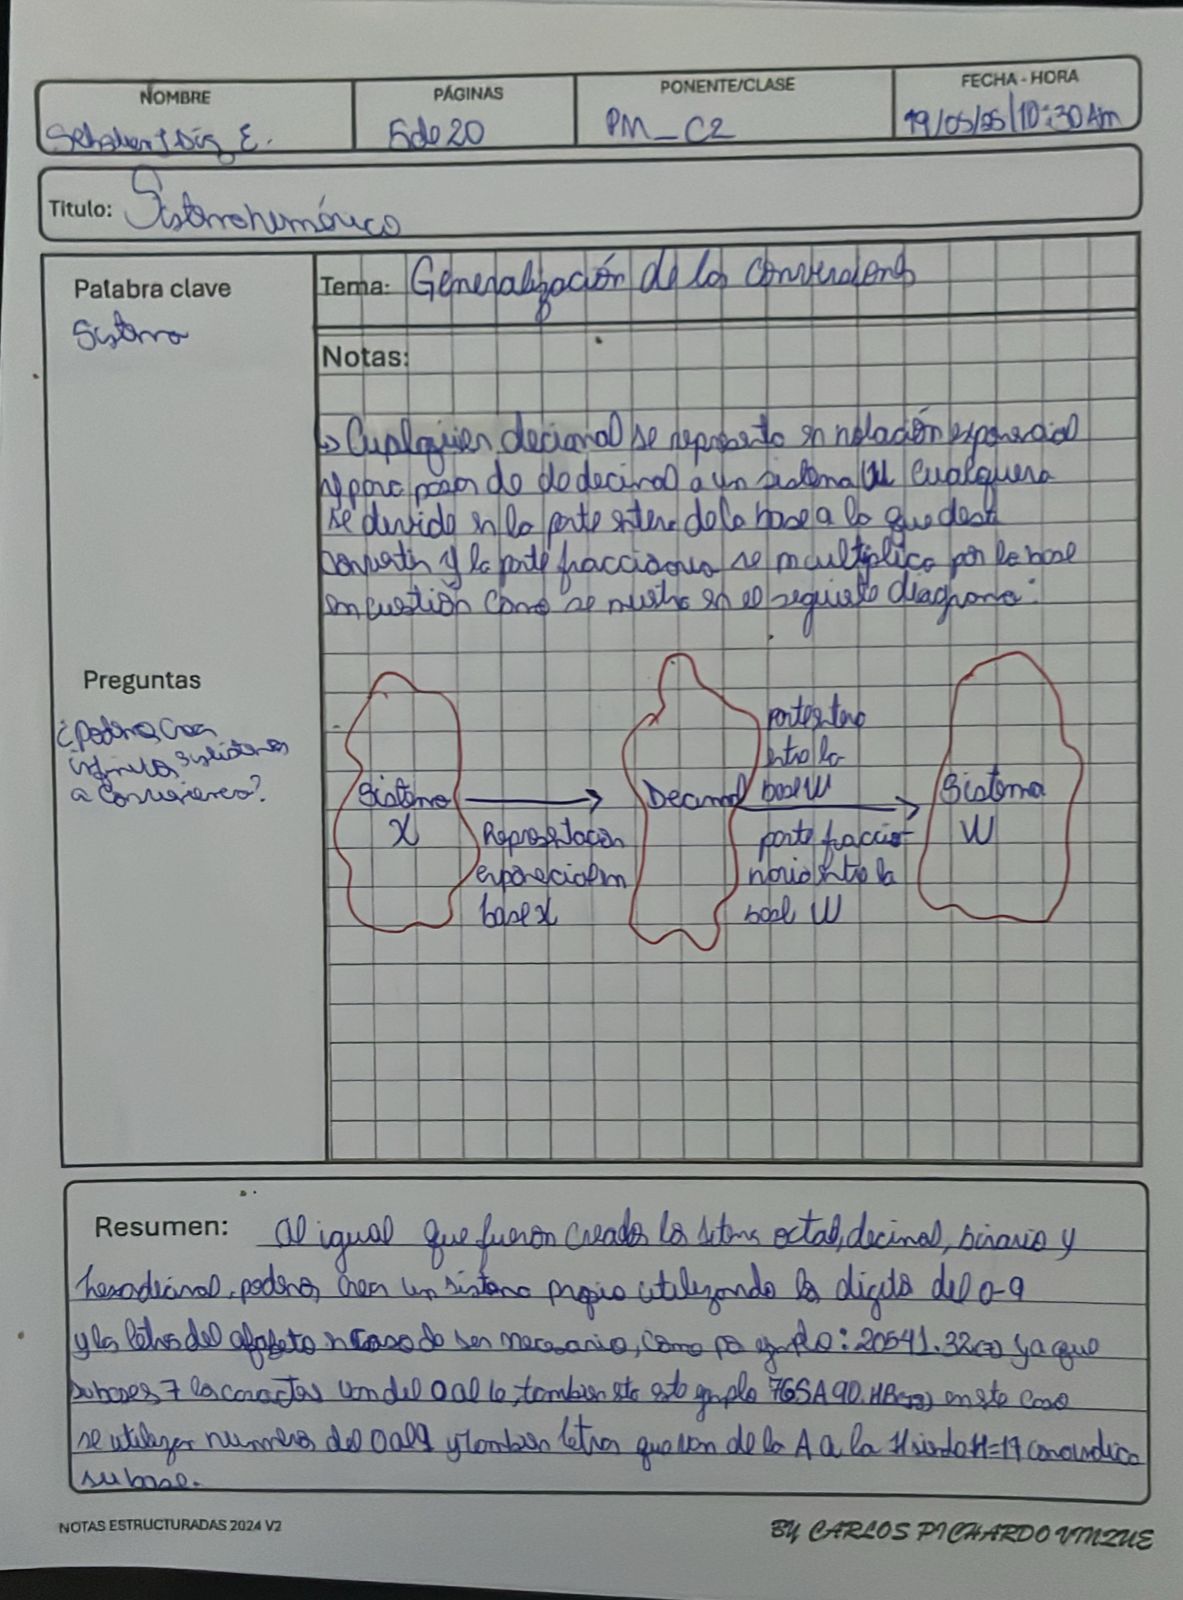 NOMBRE
PÁGINAS
PONENTE/CLASE
FECHA - HORA
E.
5 de 20
PM_C2
19/05/25|10:30 Am
Titulo: Sistema numérico
Palabra clave
Sistema
Tema: Generalización de las conversiones
Notas:
Cualquier decimal se representa en notación exponencial
y para pasar de de decimal a un sistema W cualquiera
se divide en la parte entera de la base a la que desea
convertir y la parte fraccionaria se multiplica por la base
en cuestión como se muestra en el siguiente diagrama:
Preguntas
¿Podemos crear
infinitos sistemas
a conveniencia?
Sistema
X
Representación
exponencial en
base x
Decimal
parte entera
entre la
base W
parte fraccio-
naria entre la
base W
Sistema
W
Resumen: Al igual que fueron creados los sistemas octal, decimal, binario y
hexadecimal, podemos crear un sistema propio utilizando los digitos del 0-9
y las letras del alfabeto en caso de ser necesario, como por ejemplo: 20541.32(7) ya que
su base es 7 los caracteres van del 0 al 6, tambien este ejemplo 76SA90.HB en este caso
se utilizan numeros del 0 al 9 y tambien letras que van de la A a la H siendo H=17 como indica
su base.
NOTAS ESTRUCTURADAS 2024 V2
BY CARLOS PICHARDO VIUZUE